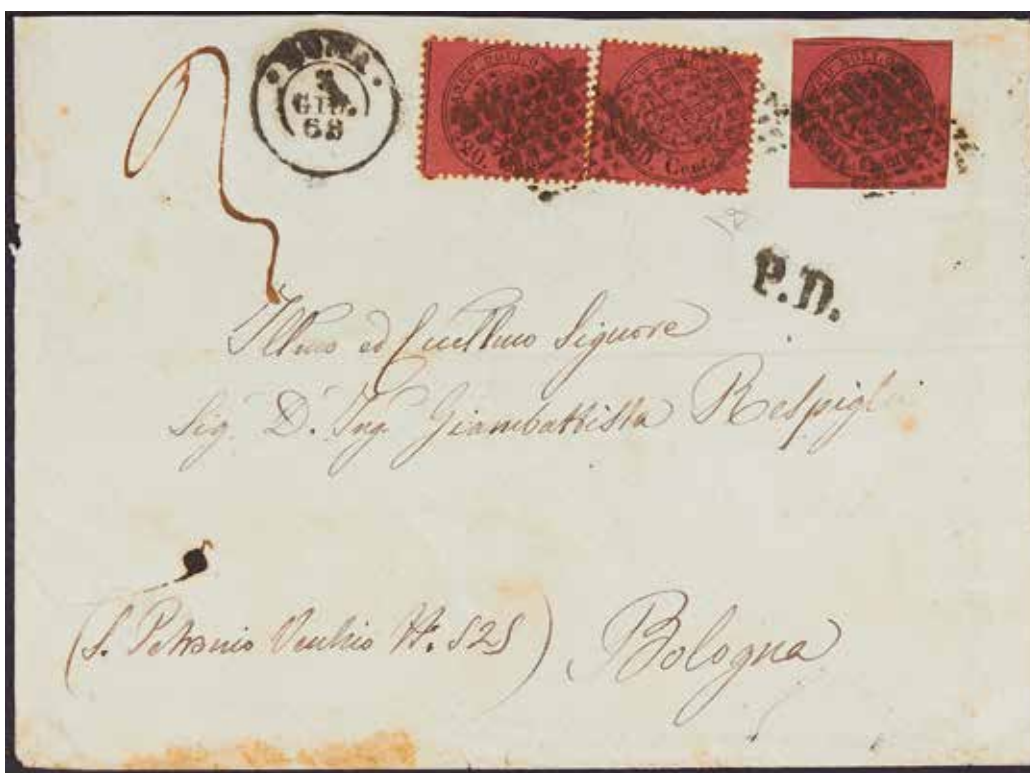 ROMA
GIU.
68
20 Cent
20 Cent
P.D.
Illmo ed Eccellmo Signore
Sig. D. Ing. Giambattista Respighi
(S. Petronio Vecchio N. 525)
Bologna